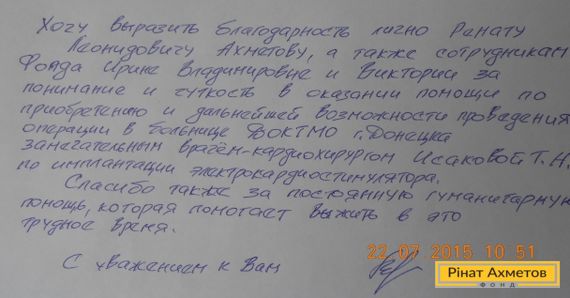 Хочу выразить благодарность лично Ренату
Леонидовичу Ахметову, а также сотрудникам
Фонда Ирине Владимировне и Виктории за
понимание и чуткость в оказании помощи по
приобретению и дальнейшей возможности проведения
операции в больнице ДОКТМО г. Донецка
замечательным врачём-кардиохирургом Исаковой Т.Н.
по имплантации электрокардиостимулятора.
Спасибо также за постоянную гуманитарную
помощь, которая помогает выжить в это
трудное время.
С уважением к Вам
22.07.2015 10:51
Рінат Ахметов
ФОНД